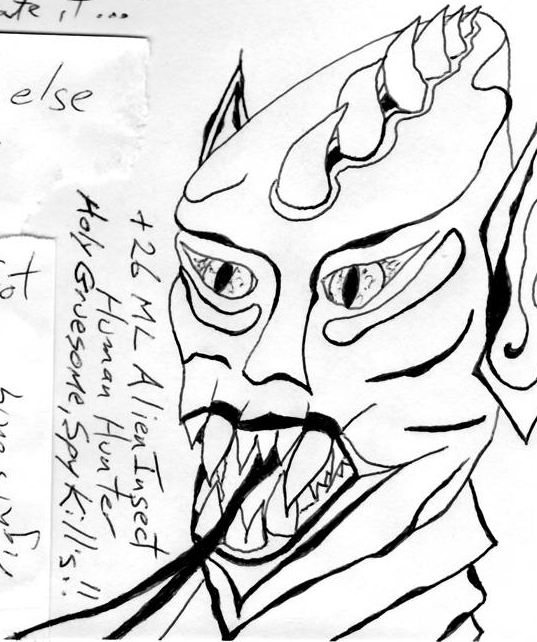 ate it...
else
+26 ML Alien Insect
Human Hunter
Holy Gruesome, Spy Kills!!